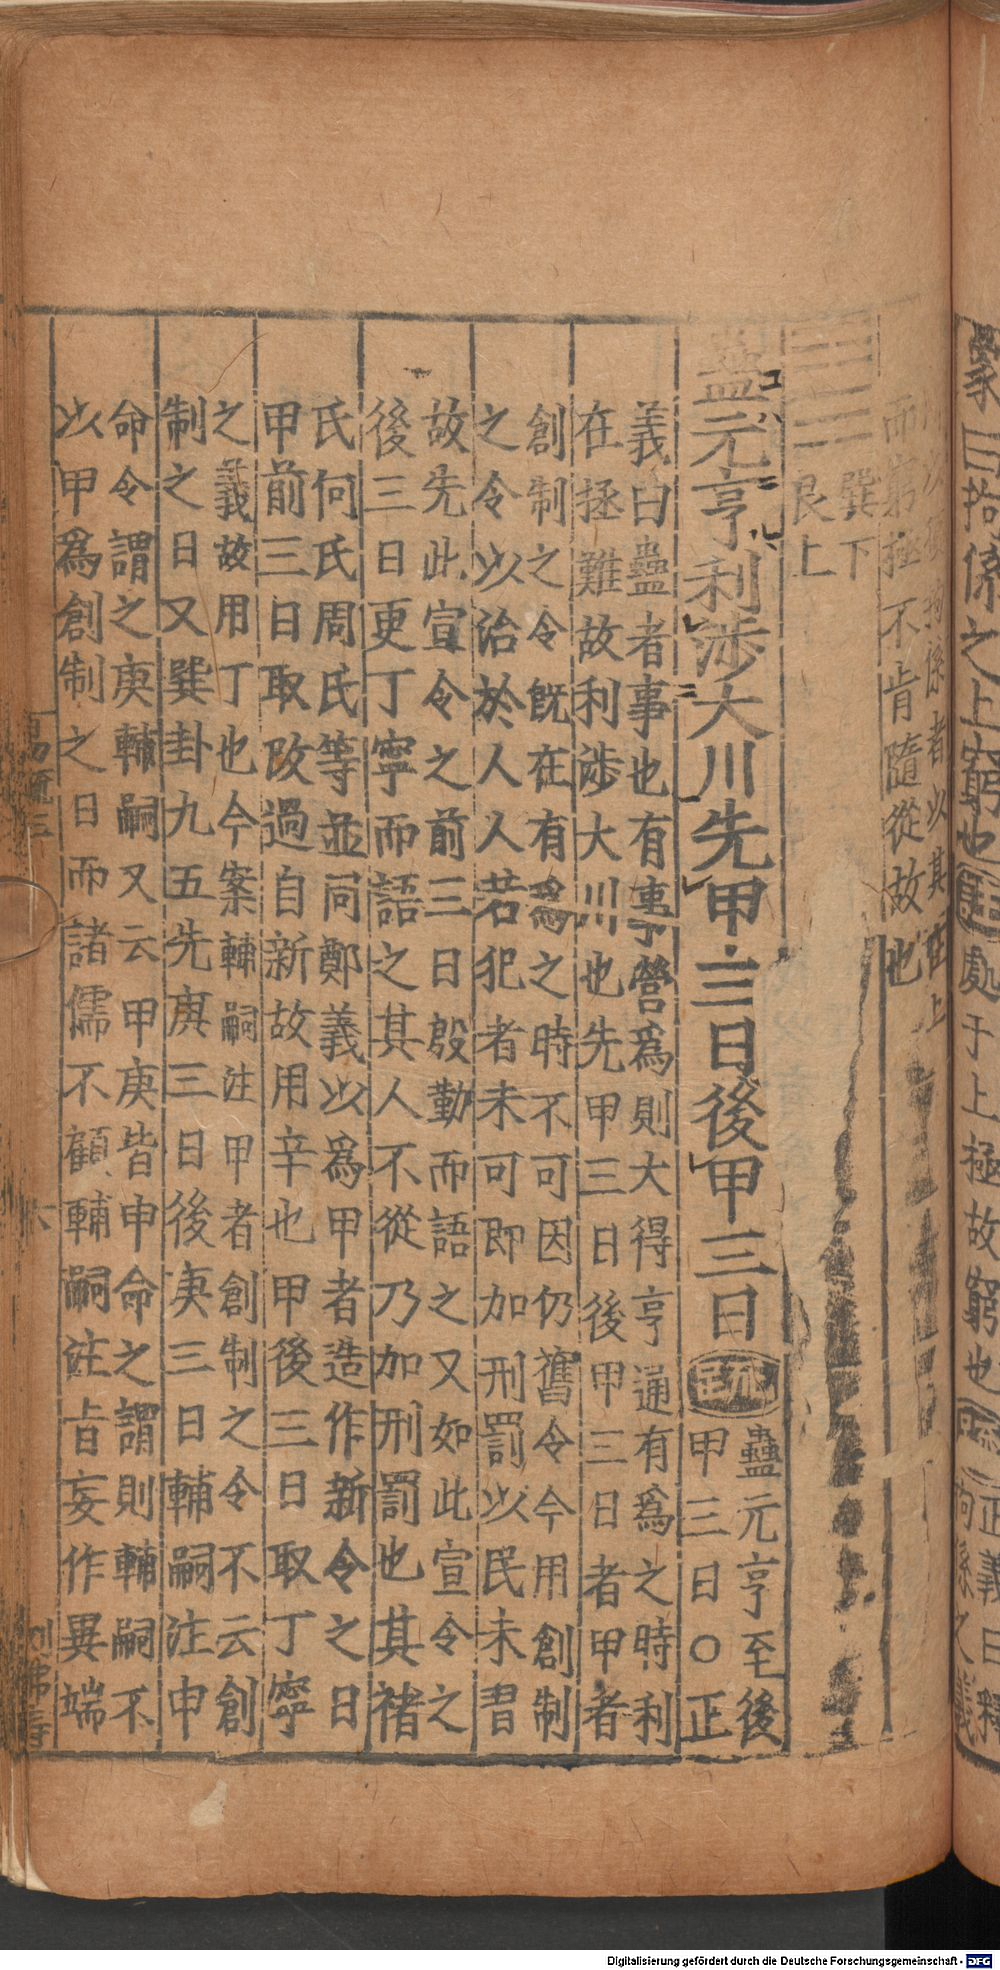 象曰拘係之上窮也處于上極故窮也
正義曰釋
拘係之義
拘係者以其在上
而窮極不肯隨從故也
巽下
艮上
蠱元亨利涉大川先甲三日後甲三日疏
蠱元亨至後
甲三日○正
義曰蠱者事也有事營爲則大得亨通有爲之時利
在拯難故利涉大川也先甲三日後甲三日者甲者
創制之令既在有爲之時不可因仍舊令今用創制
之令以治於人人若犯者未可即加刑罰以民未習
故先此宣令之前三日殷勤而語之又如此宣令之
後三日更丁寧而語之其人不從乃加刑罰也其褚
氏何氏周氏等並同鄭義以爲甲者造作新令之日
甲前三日取改過自新故用辛也甲後三日取丁寧
之義故用丁也今案輔嗣注甲者創制之令不云創
制之日又巽卦九五先庚三日後庚三日輔嗣注申
命令謂之庚輔嗣又云甲庚皆申命之謂則輔嗣不
以甲爲創制之日而諸儒不顧輔嗣注旨妄作異端
易疏三
六
Digitalisierung gefördert durch die Deutsche Forschungsgemeinschaft - DFG